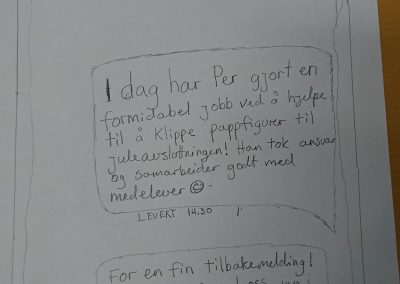 I dag har Per gjort en
formidabel jobb ved å hjelpe
til å klippe pappfigurer til
juleavslutningen! Han tok ansvar
og samarbeider godt med
medelever ☺.
LEVERT 14:30
For en fin tilbakemelding!